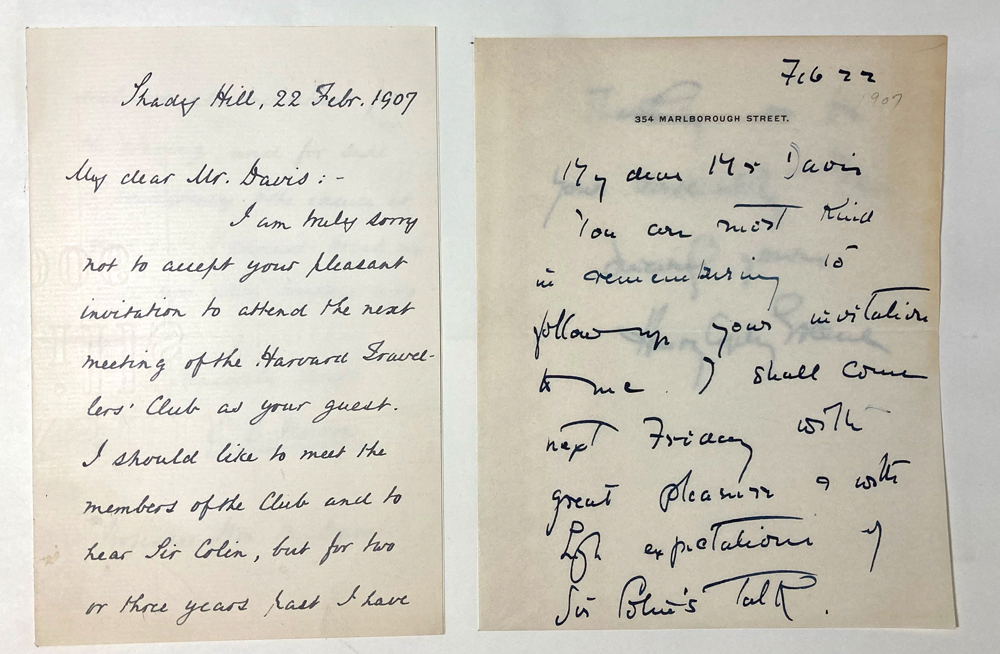 Shady Hill, 22 Febr. 1907
My dear Mr. Davis :-
I am truly sorry
not to accept your pleasant
invitation to attend the next
meeting of the Harvard Travel-
lers' Club as your guest.
I should like to meet the
members of the Club and to
hear Sir Colin, but for two
or three years past I have
Feb 22
1907
354 MARLBOROUGH STREET.
My dear Mr Davis
You are most kind
in remembering to
follow up your invitation
to me. I shall come
next Friday with
great pleasure & with
high expectations of
Sir Colin's Talk.